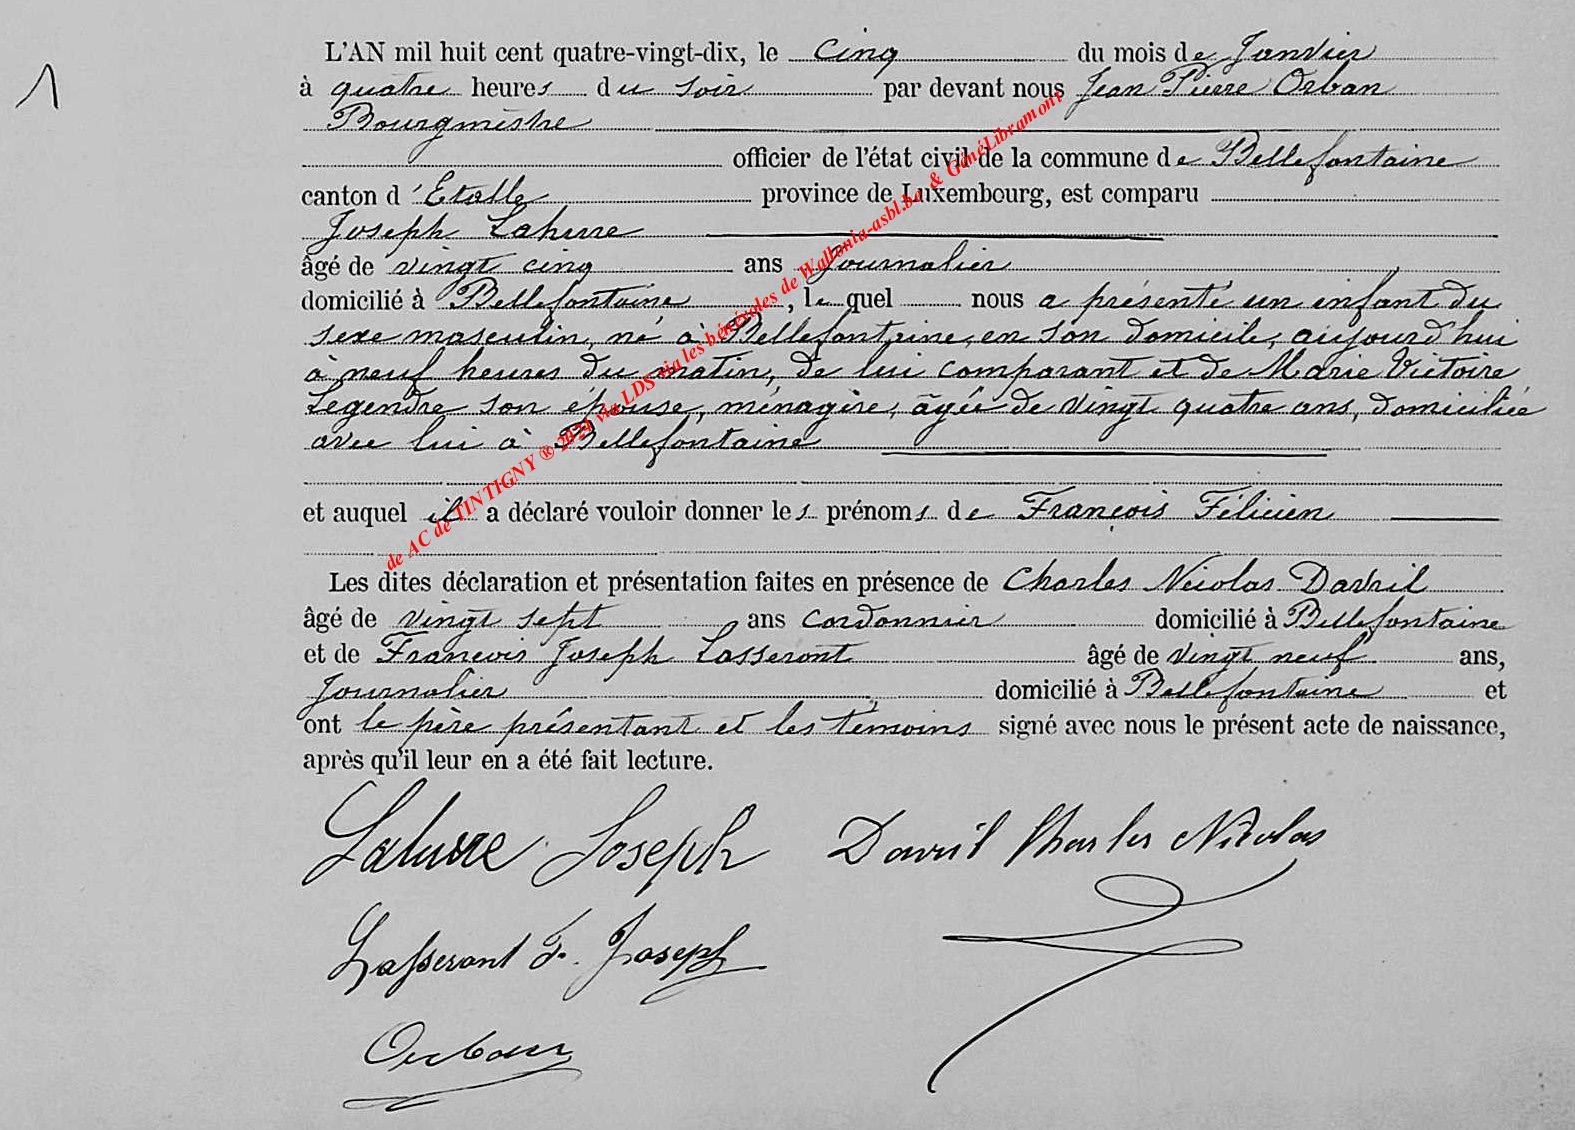 1
L'AN mil huit cent quatre-vingt-dix, le cinq du mois de Janvier
à quatre heures du soir par devant nous Jean Pierre Orban
Bourgmestre
officier de l'état civil de la commune de Bellefontaine
canton d'Etalle province de Luxembourg, est comparu
Joseph Lahure
âgé de vingt cinq ans Journalier
domicilié à Bellefontaine, le quel nous a présenté un enfant du
sexe masculin, né à Bellefontaine, en son domicile, aujourd'hui
à neuf heures du matin, de lui comparant et de Marie Victoire
Legendre son épouse, ménagère, âgée de vingt quatre ans, domiciliée
avec lui à Bellefontaine
et auquel il a déclaré vouloir donner les prénoms de François Félicien
Les dites déclaration et présentation faites en présence de Charles Nicolas Davril
âgé de vingt sept ans cordonnier domicilié à Bellefontaine
et de François Joseph Lasseront âgé de vingt neuf ans,
Journalier domicilié à Bellefontaine et
ont le père présentant et les témoins signé avec nous le présent acte de naissance,
après qu'il leur en a été fait lecture.
Lahure Joseph Davril Charles Nicolas
Lasseront F. Joseph
Orban
de AC de TINTIGNY ® 2021 via LDS via les bénévoles de Wallonia-asbl.be & GénéLibramont